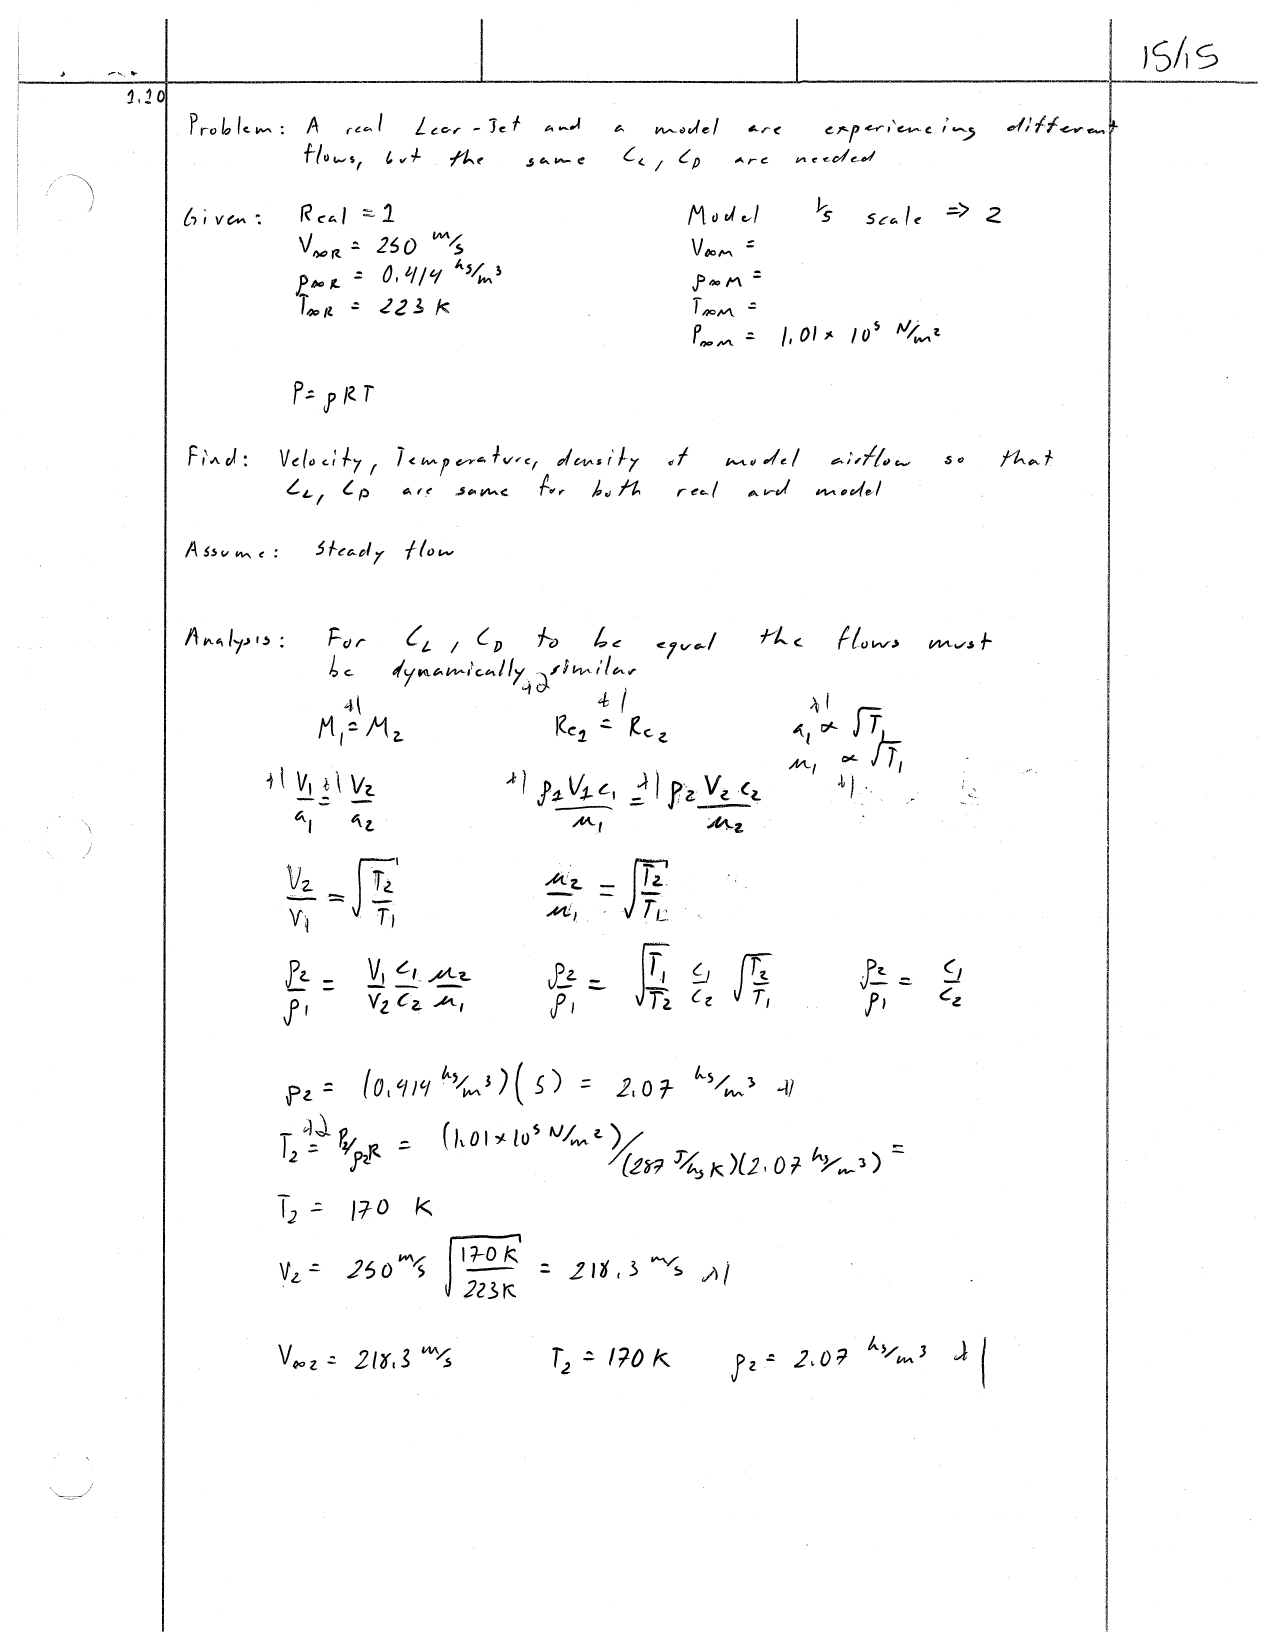 15/15
1.10
Problem: A real Lear-Jet and a model are experiencing different
flows, but the same C_L, C_D are needed
Given: Real = 1 Model 1/5 scale => 2
V∞R = 250 m/s V∞M =
ρ∞R = 0.414 kg/m³ ρ∞M =
T∞R = 223 K T∞M =
P∞M = 1.01 × 10⁵ N/m²
P = ρRT
Find: Velocity, Temperature, density of model airflow so that
C_L, C_D are same for both real and model
Assume: Steady flow
Analysis: For C_L, C_D to be equal the flows must
be dynamically similar
+1 +2 +1 +1
M₁ = M₂ Re₁ = Re₂ a₁ ∝ √T₁
μ₁ ∝ √T₁
+1 V₁/a₁ =+1 V₂/a₂ +1 ρ₁V₁c₁/μ₁ =+1 ρ₂V₂c₂/μ₂ +1
V₂/V₁ = √(T₂/T₁) μ₂/μ₁ = √(T₂/T₁)
ρ₂/ρ₁ = V₁/V₂ c₁/c₂ μ₂/μ₁ ρ₂/ρ₁ = √(T₁/T₂) c₁/c₂ √(T₂/T₁) ρ₂/ρ₁ = c₁/c₂
ρ₂ = (0.414 kg/m³)(5) = 2.07 kg/m³ +1
T₂ =+2 P₂/ρ₂R = (1.01×10⁵ N/m²)/(287 J/kgK)(2.07 kg/m³) =
T₂ = 170 K
V₂ = 250 m/s √(170K/223K) = 218.3 m/s +1
V∞2 = 218.3 m/s T₂ = 170 K ρ₂ = 2.07 kg/m³ +1